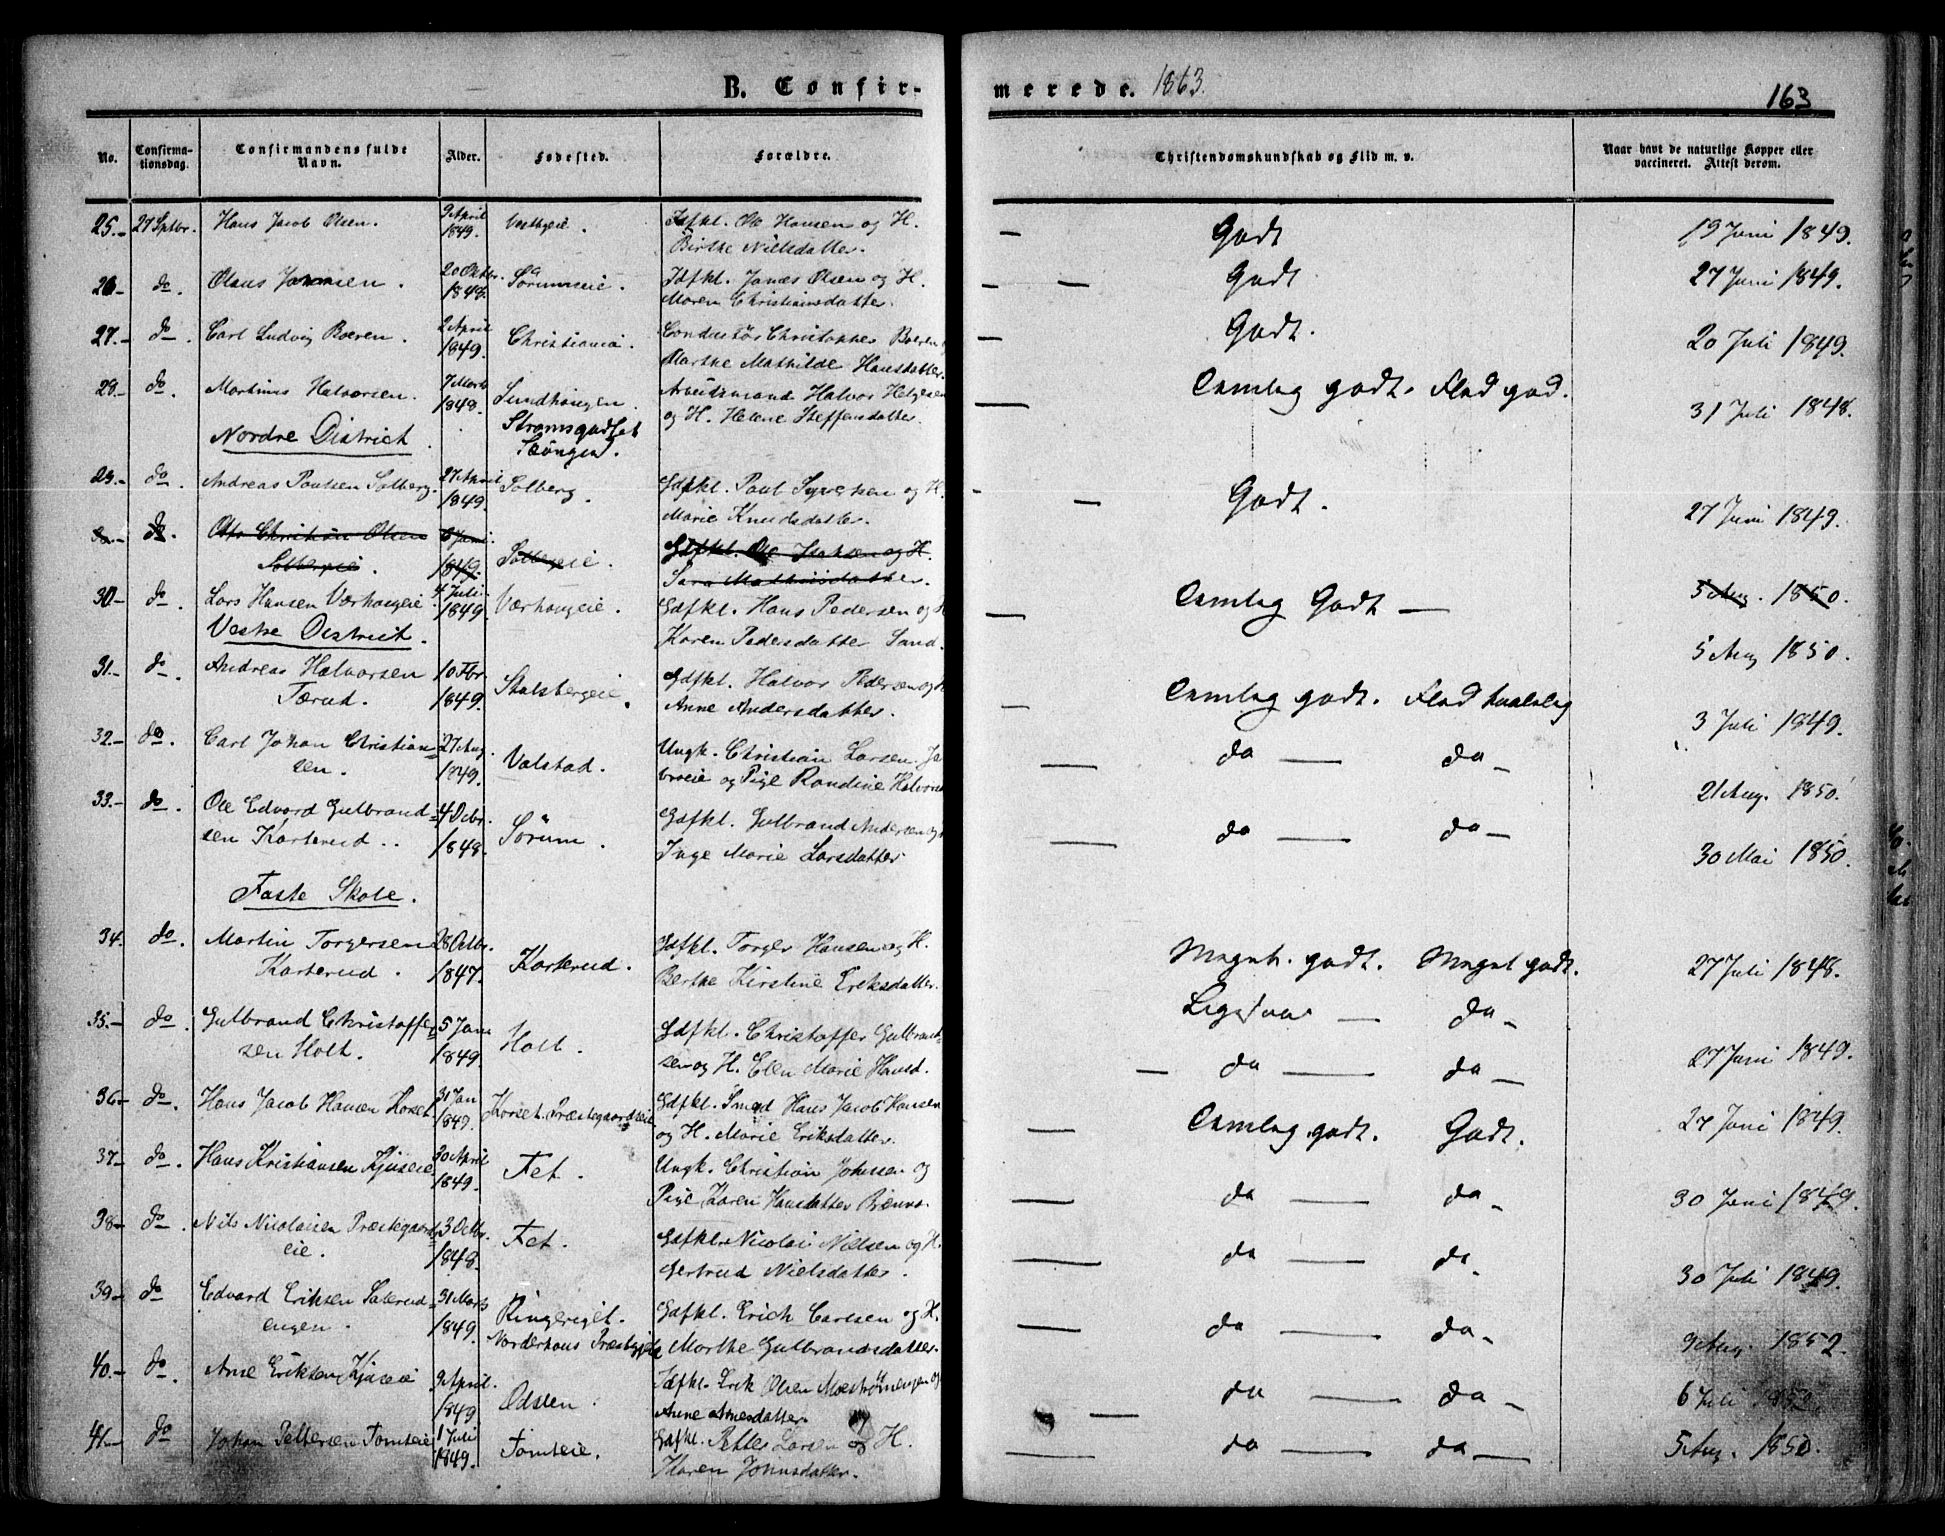 B. Confir-
merede. 1863.
163
No.
Confirma-
tionsdag.
Confirmandens fulde
Navn.
Alder.
Fødested.
Forældre.
Christendomskundskab og Flid m. v.
Naar havt de naturlige Kopper eller
vaccineret. Attest derom.
25.- 27 Sptbr. Hans Jacob Olsen. 9 April 1849. Gdfkl. Ole Hansen og H.
Birthe Nielsdatter. — Godt 19 Juni 1849.
26- do. Olaus Jonassen. 20 Oktbr. 1848. Sørumseie. Gdfkl. Jonas Olsen og H.
Maren Christiansdatter. — — Godt 27 Juni 1849.
27.- do. Carl Ludvig Boeren. 2 April 1849. Christiania. Conductør Christopher Boeren
Marthe Mathilde Hansdatter. — Godt. 20 Juli 1849.
28.- do. Martinus Halvorsen. 7 Marts 1848. Sundhaugen. Arbeidsmand Halvor Helgesen
og H. Helene Steffensdatter. — Temlig godt. Flid god. 31 Juli 1848.
Nordre District. Strømsgodset
29.- do. Andreas Paulsen Solberg. 27 April 1849. Solberg. Gdfkl. Paul Syversen og H.
Marie Knudsdatter. - — Godt. 27 Juni 1849.
do. Otto Christian Olsen
Solbergeie. 6 Juni 1849. Solbergeie. Gdfkl. Ole Isaksen og H.
Sara Mathisdatter. 5 Aug. 1850.
30- do. Lars Hansen Værhougeie. 4 Juli 1849. Værhougeie. Gdfkl. Hans Pedersen og H
Karen Pedersdatter Sand. — Temlig Godt — 5 Aug 1850.
Vestre District.
31.- do. Andreas Halvorsen
Tærud. 10 Fbr 1849. Stalsbergeie. Gdfkl. Halvor Pedersen og H
Anne Andersdatter. — Temlig godt. Flid taalelig 3 Juli 1849.
32.- do. Carl Johan Christian-
sen. 27 Aug. 1849. Valstad. Ungk. Christian Larsen
og Pige Randine Halvors — do — do - 21 Aug. 1850.
33.- do. Ole Edvard Gulbrand-
sen Karterud. 4 Dcbr. 1848. Sørum. Gdfkl. Gulbrand Andersen og
Inge Marie Larsdatter. — do — do — 30 Mai 1850.
Faste Skole.
34. do. Martin Torgersen
Karterud. 28 Octbr. 1847. Karterud. Gdfkl. Torger Hansen og H.
Berthe Kirstine Eriksdatter. Meget godt. Meget godt. 27 Juli 1848.
35.- do. Gulbrand Christoffer-
sen Holt. 5 Jan 1849. Holt. Gdfkl. Christoffer Gulbrand-
sen og H. Elen Marie Hansd. Ligesaa — do - 27 Juni 1849.
36- do. Hans Jacob Hansen Korset. 31 Jan 1849. Korset. Præstegaardseie Gdfkl. Smed Hans Jacob Hansen
og H. Marie Eriksdatter. — do — do — 27 Juni 1849.
37- do. Hans Kristiansen Kjuseie 20 April 1849. Fet. Ungk. Christian Johnsen og
Pige Karen Hansdatter — Temlig godt. Godt. 30 Juni 1849.
38- do. Nils Nicolaisen Præstegaards-
eie. 3 Octbr. 1848. Fet. Gdfkl. Nicolai Nielsen og H.
Gertrud Nielsdatter. — do — do - 30 Juli 1849.
39- do Edvard Eriksen Saterud-
engen. 31 Marts 1849. Ringeriget.
Norderhous Præstegjeld Gdfkl. Erich Carlsen og H.
Marthe Gulbrandsdatter. — do — do. 9 Aug. 1852.
40.- do. Arne Eriksen Kjuseie 9 April. 1849. Odsten. Gdfkl. Erik Olsen og
Anne Arnesdatter. — do — do - 6 Juli
41.- do Johan Pettersen Tomteie 1 Juli 1849. Tomteie. Gdfkl. Petter Larsen og H.
Karen Johnsdatter. — do — do — 5 Aug. 1850.